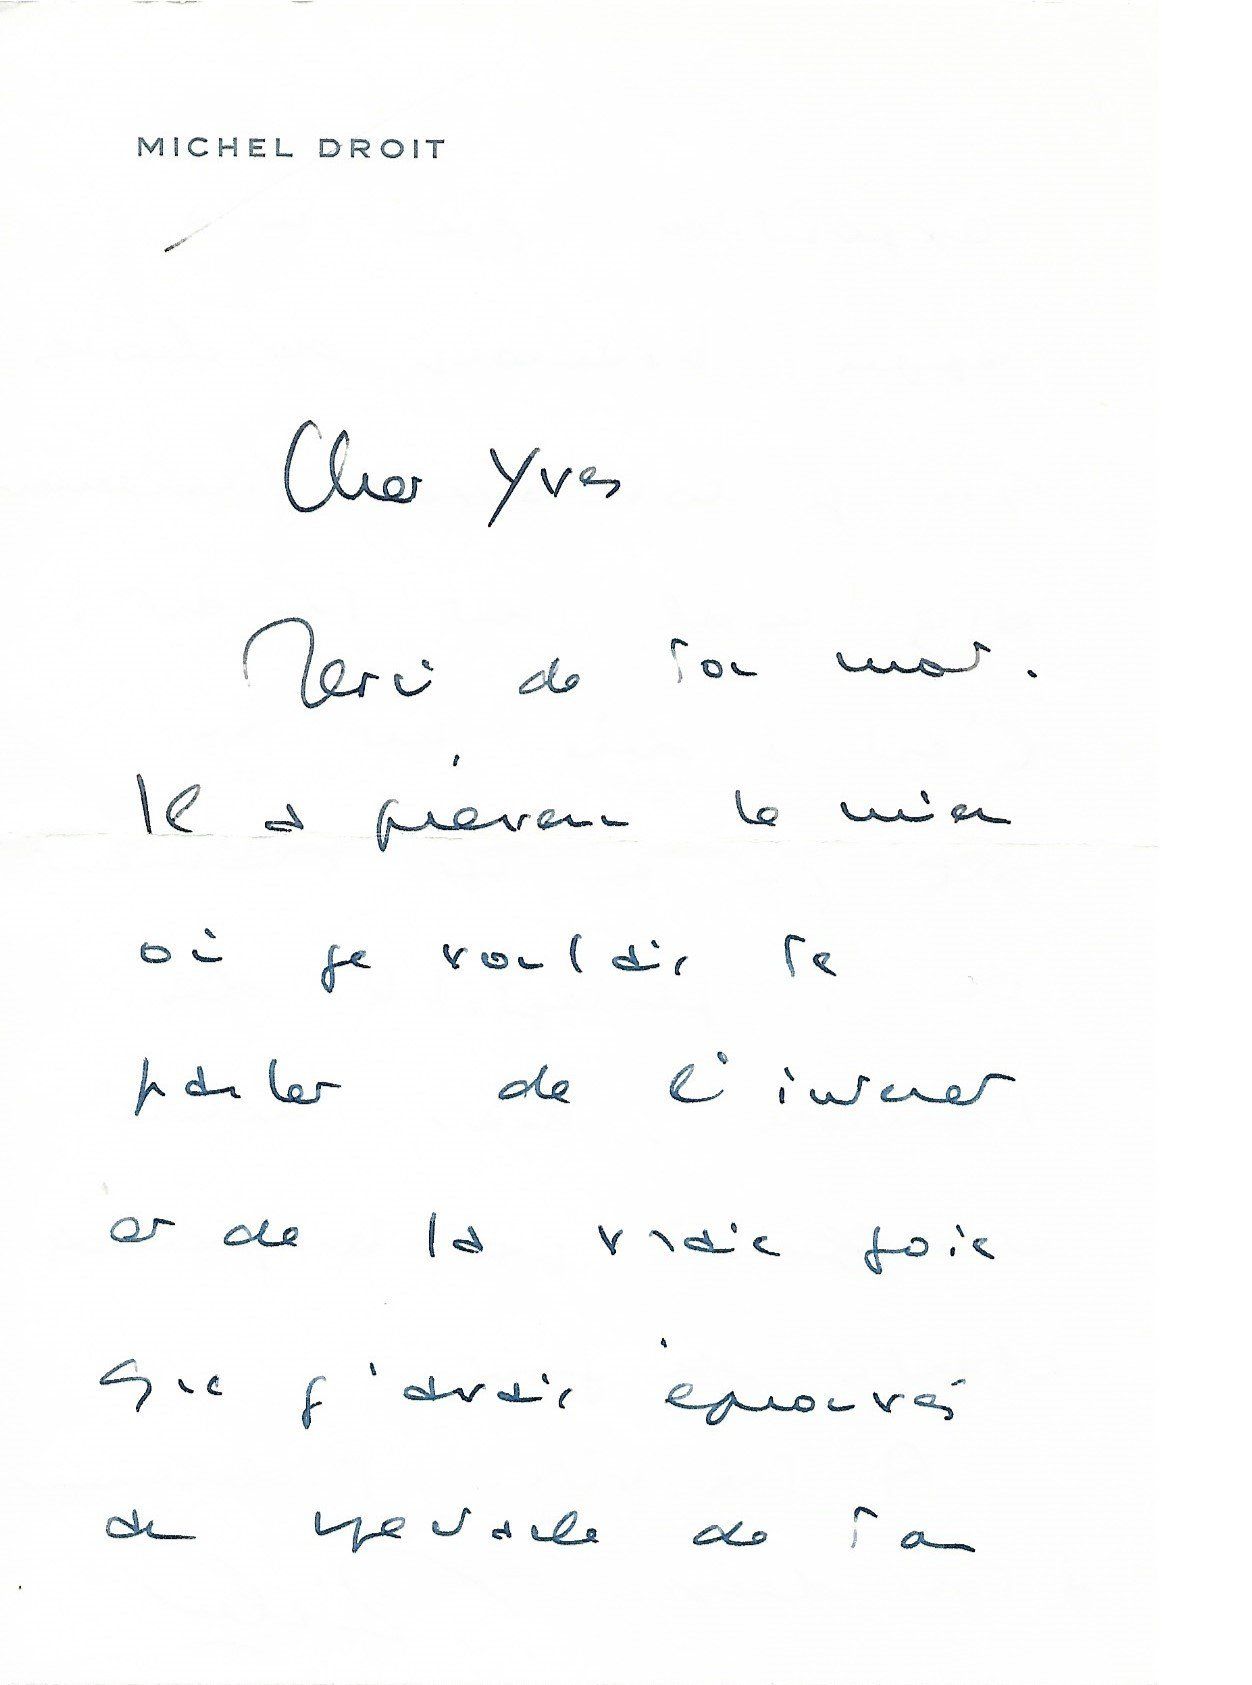 MICHEL DROIT
Cher Yves
Merci de ton mot.
Il a prévenu le mien
où je voulais te
parler de l'intérêt
et de la vraie joie
que j'avais éprouvés
au spectacle de ton